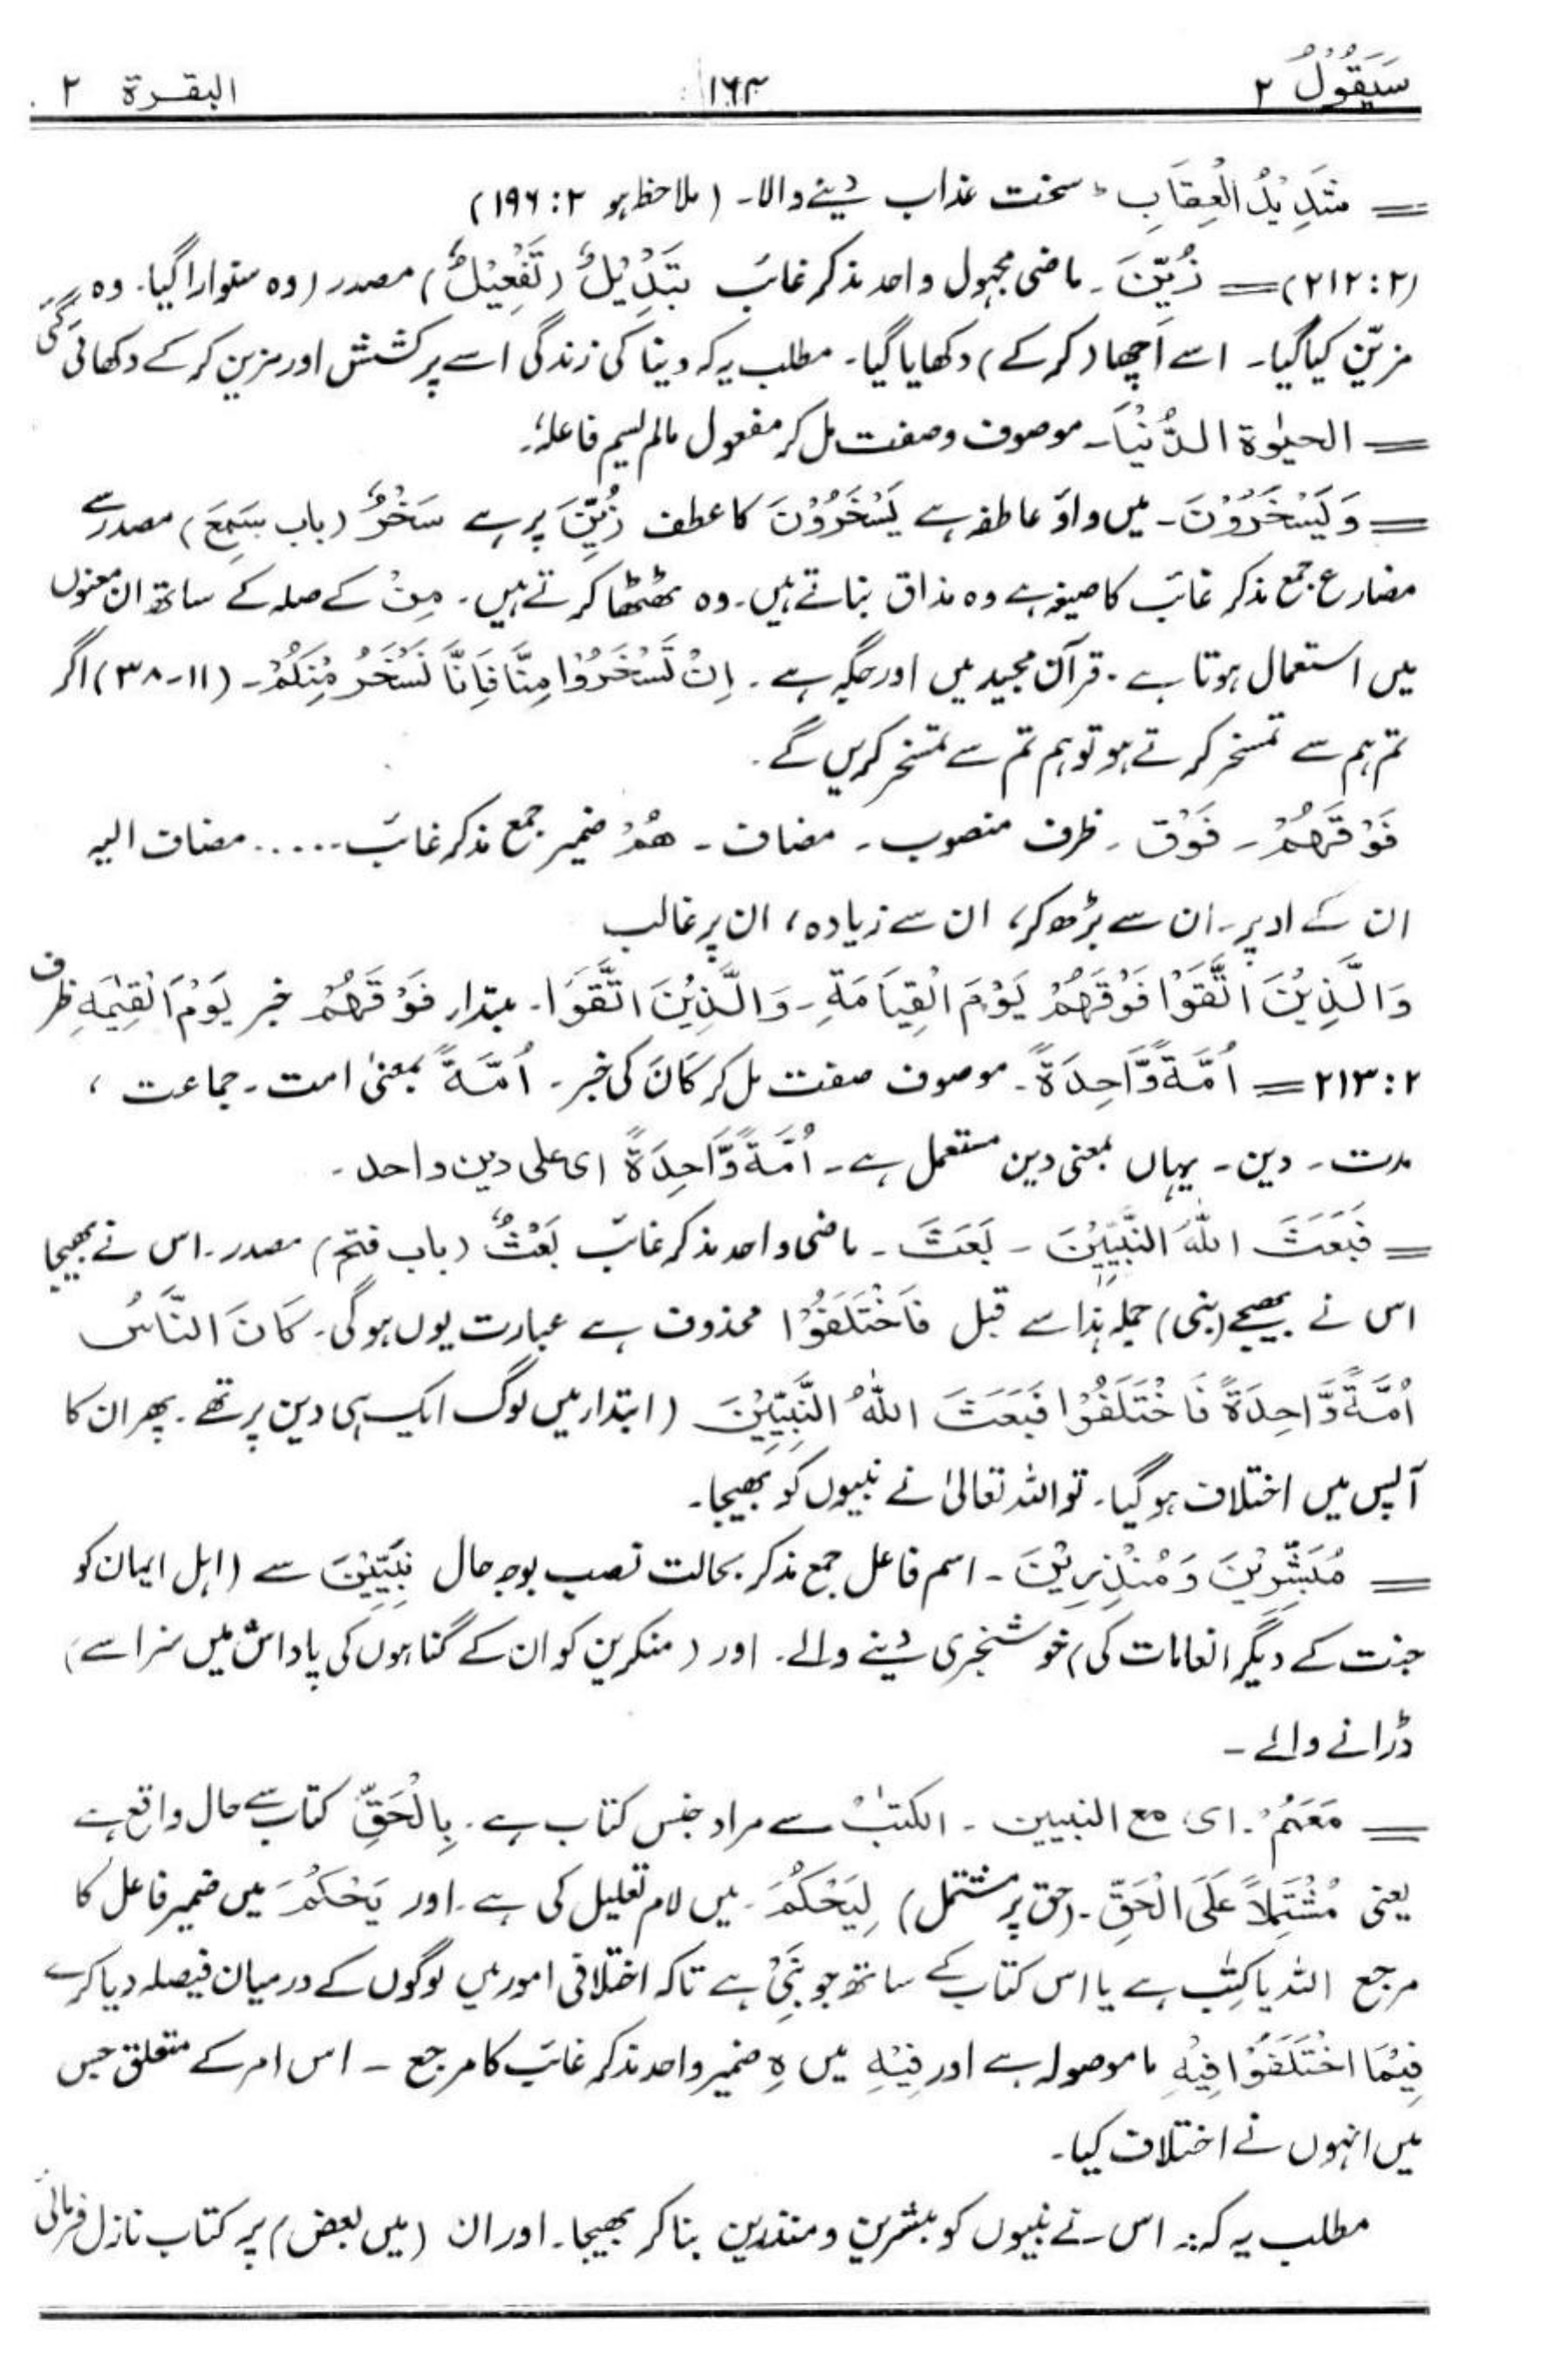 سَيَقُوْلُ ۲ ۱۶۴ البقرة ۲
= شَدِيْدُ الْعِقَابِ، سخت عذاب دینے والا۔ (ملاحظہ ہو ۲: ۱۹۶)
(۲: ۲۱۲) = زُيِّنَ ۔ ماضی مجہول واحد مذکر غائب تَبْدِيْلٌ (تَفْعِيْلٌ) مصدر (وہ سنوارا گیا۔ وہ
مزیّن کیا گیا۔ اسے اچھا (کرکے) دکھایا گیا۔ مطلب یہ کہ دینا کی زندگی اسے پرکشش اور مزین کرکے دکھائی گئی
= الحیٰوۃ الدُّنْیَا۔ موصوف و صفت مل کر مفعول مالم یسم فاعلہٗ۔
= وَيَسْخَرُوْنَ۔ میں واؤ عاطفہ ہے يَسْخَرُوْنَ کا عطف زُيِّنَ پر ہے سَخْرٌ (باب سَمِعَ) مصدر سے
مضارع جمع مذکر غائب کا صیغہ ہے وہ مذاق بناتے ہیں۔ وہ ٹھٹھا کرتے ہیں۔ مِنْ کے صلہ کے ساتھ ان معنوں
میں استعمال ہوتا ہے۔ قرآن مجید میں اور جگہ ہے۔ اِنْ تَسْخَرُوْا مِنَّا فَاِنَّا نَسْخَرُ مِنْكُمْ۔ (۱۱-۳۸) اگر
تم ہم سے تمسخر کرتے ہو تو ہم تم سے تمسخر کریں گے۔
فَوْقَهُمْ۔ فَوْقَ ۔ ظرف منصوب ۔ مضاف ۔ هُمْ ضمیر جمع مذکر غائب ..... مضاف الیہ
ان کے اوپر۔ ان سے بڑھ کر، ان سے زیادہ، ان پر غالب
وَالَّذِيْنَ اتَّقَوْا فَوْقَهُمْ يَوْمَ الْقِيَامَةِ۔ وَالَّذِيْنَ اتَّقَوْا۔ مبتدار فَوْقَهُمْ خبر يَوْمَ الْقِيٰمَةِ ظرف
۲: ۲۱۳ = اُمَّةً وَّاحِدَةً۔ موصوف صفت مل کر كَانَ کی خبر۔ اُمَّةً بمعنیٰ امت۔ جماعت،
مدت۔ دین۔ یہاں بمعنی دین مستعمل ہے۔ اُمَّةً وَّاحِدَةً ای علی دین واحد۔
= فَبَعَثَ اللّٰهُ النَّبِيّٖنَ ۔ بَعَثَ ۔ ماضی واحد مذکر غائب بَعْثٌ (باب فتح) مصدر۔ اس نے بھیجا
اس نے بھیجے (نبی) جملہ ہٰذا سے قبل فَاخْتَلَفُوْا محذوف ہے عبارت یوں ہوگی۔ كَانَ النَّاسُ
اُمَّةً وَّاحِدَةً فَاخْتَلَفُوْا فَبَعَثَ اللّٰهُ النَّبِيّٖنَ (ابتدار میں لوگ ایک ہی دین پر تھے۔ پھر ان کا
آپس میں اختلاف ہوگیا۔ تو اللہ تعالیٰ نے نبیوں کو بھیجا۔
= مُبَشِّرِيْنَ وَمُنْذِرِيْنَ ۔ اسم فاعل جمع مذکر بحالت نصب بوجہ حال نَبِيِّيْنَ سے (اہل ایمان کو
جنت کے دیگر انعامات کی) خوشخبری دینے والے۔ اور (منکرین کو ان کے گناہوں کی پاداش میں سزا سے)
ڈرانے والے ۔
= مَعَهُمْ۔ ای مع النبيين ۔ الكتٰبَ سے مراد جنس کتاب ہے۔ بِالْحَقِّ کتاب سے حال واقع ہے
یعنی مُشْتَمِلًا عَلَی الْحَقِّ۔ (حق پر مشتمل) لِيَحْكُمَ۔ میں لام تعلیل کی ہے۔ اور يَحْكُمَ میں ضمیر فاعل کا
مرجع اللہ یا کتٰب ہے یا اس کتاب کے ساتھ جو نبی ہے تاکہ اختلافی امور میں لوگوں کے درمیان فیصلہ دیا کرے
فِيْمَا اخْتَلَفُوْا فِيْهِ ما موصولہ ہے اور فِيْهِ میں ہِ ضمیر واحد مذکر غائب کا مرجع ۔ اس امر کے متعلق جس
میں انہوں نے اختلاف کیا۔
مطلب یہ کہ:۔ اس نے نبیوں کو مبشرین و منذرین بنا کر بھیجا۔ اور ان (میں بعض) پر کتاب نازل فرمائی